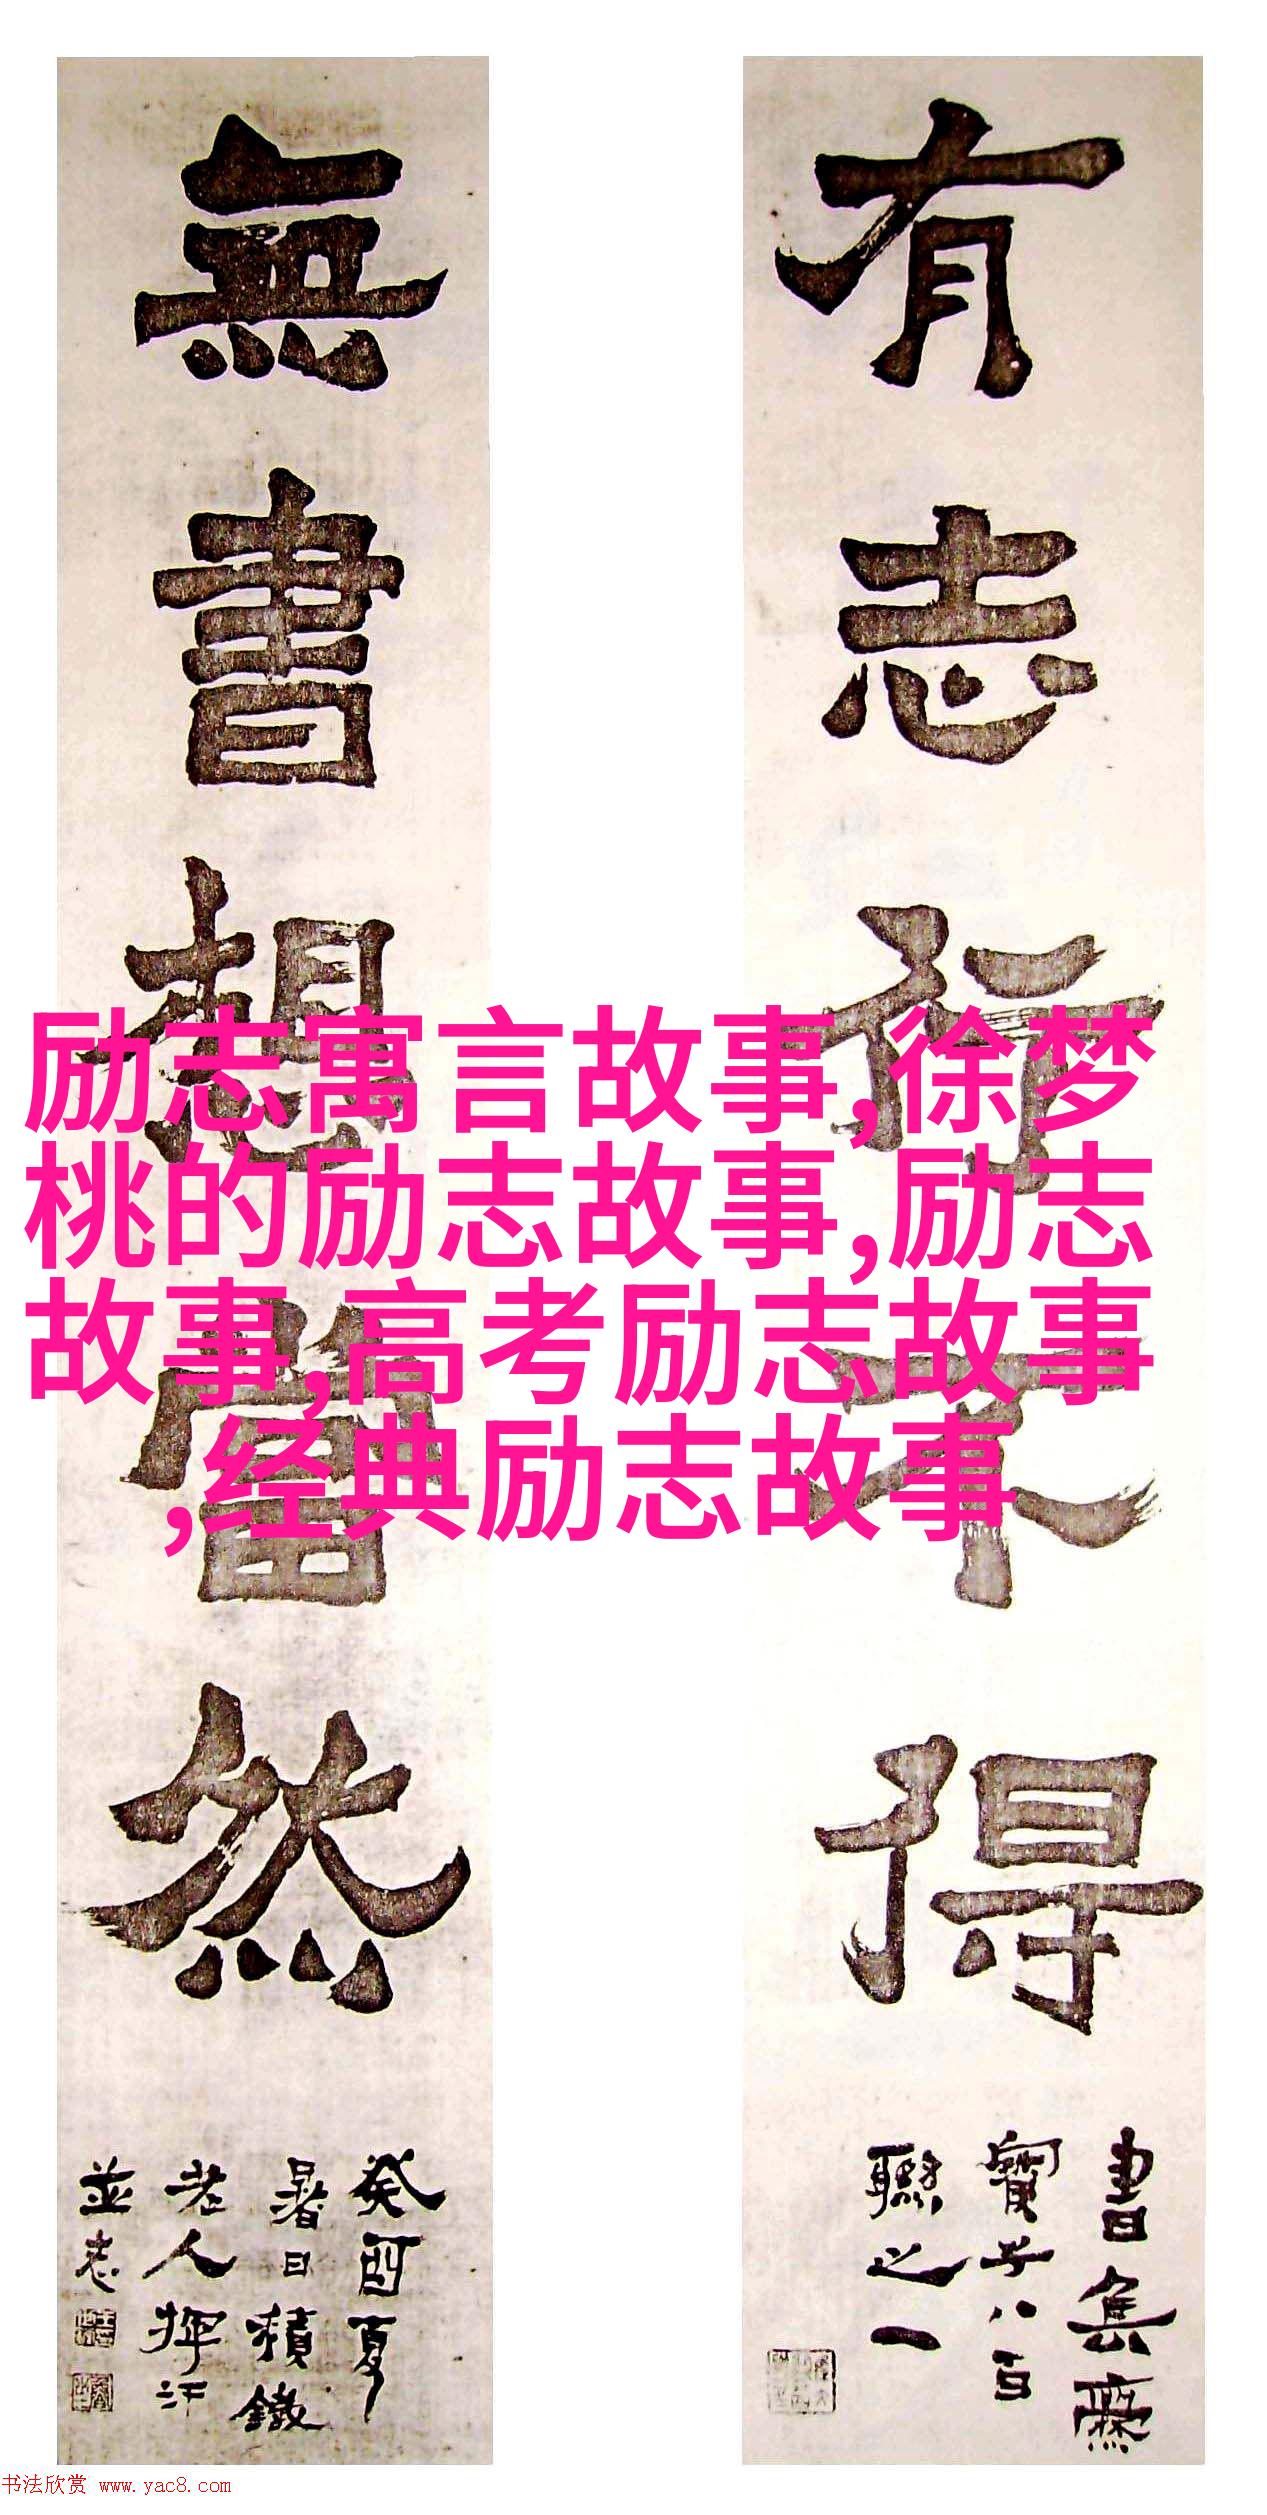 有志行不得
書集麝
寶子八百
聯之一
無書想當然
癸酉夏
暑日積鐵
老人揮汗
並志
励志寓言故事,徐梦
桃的励志故事,励志
故事,高考励志故事
,经典励志故事
书法欣赏 www.yac8.com